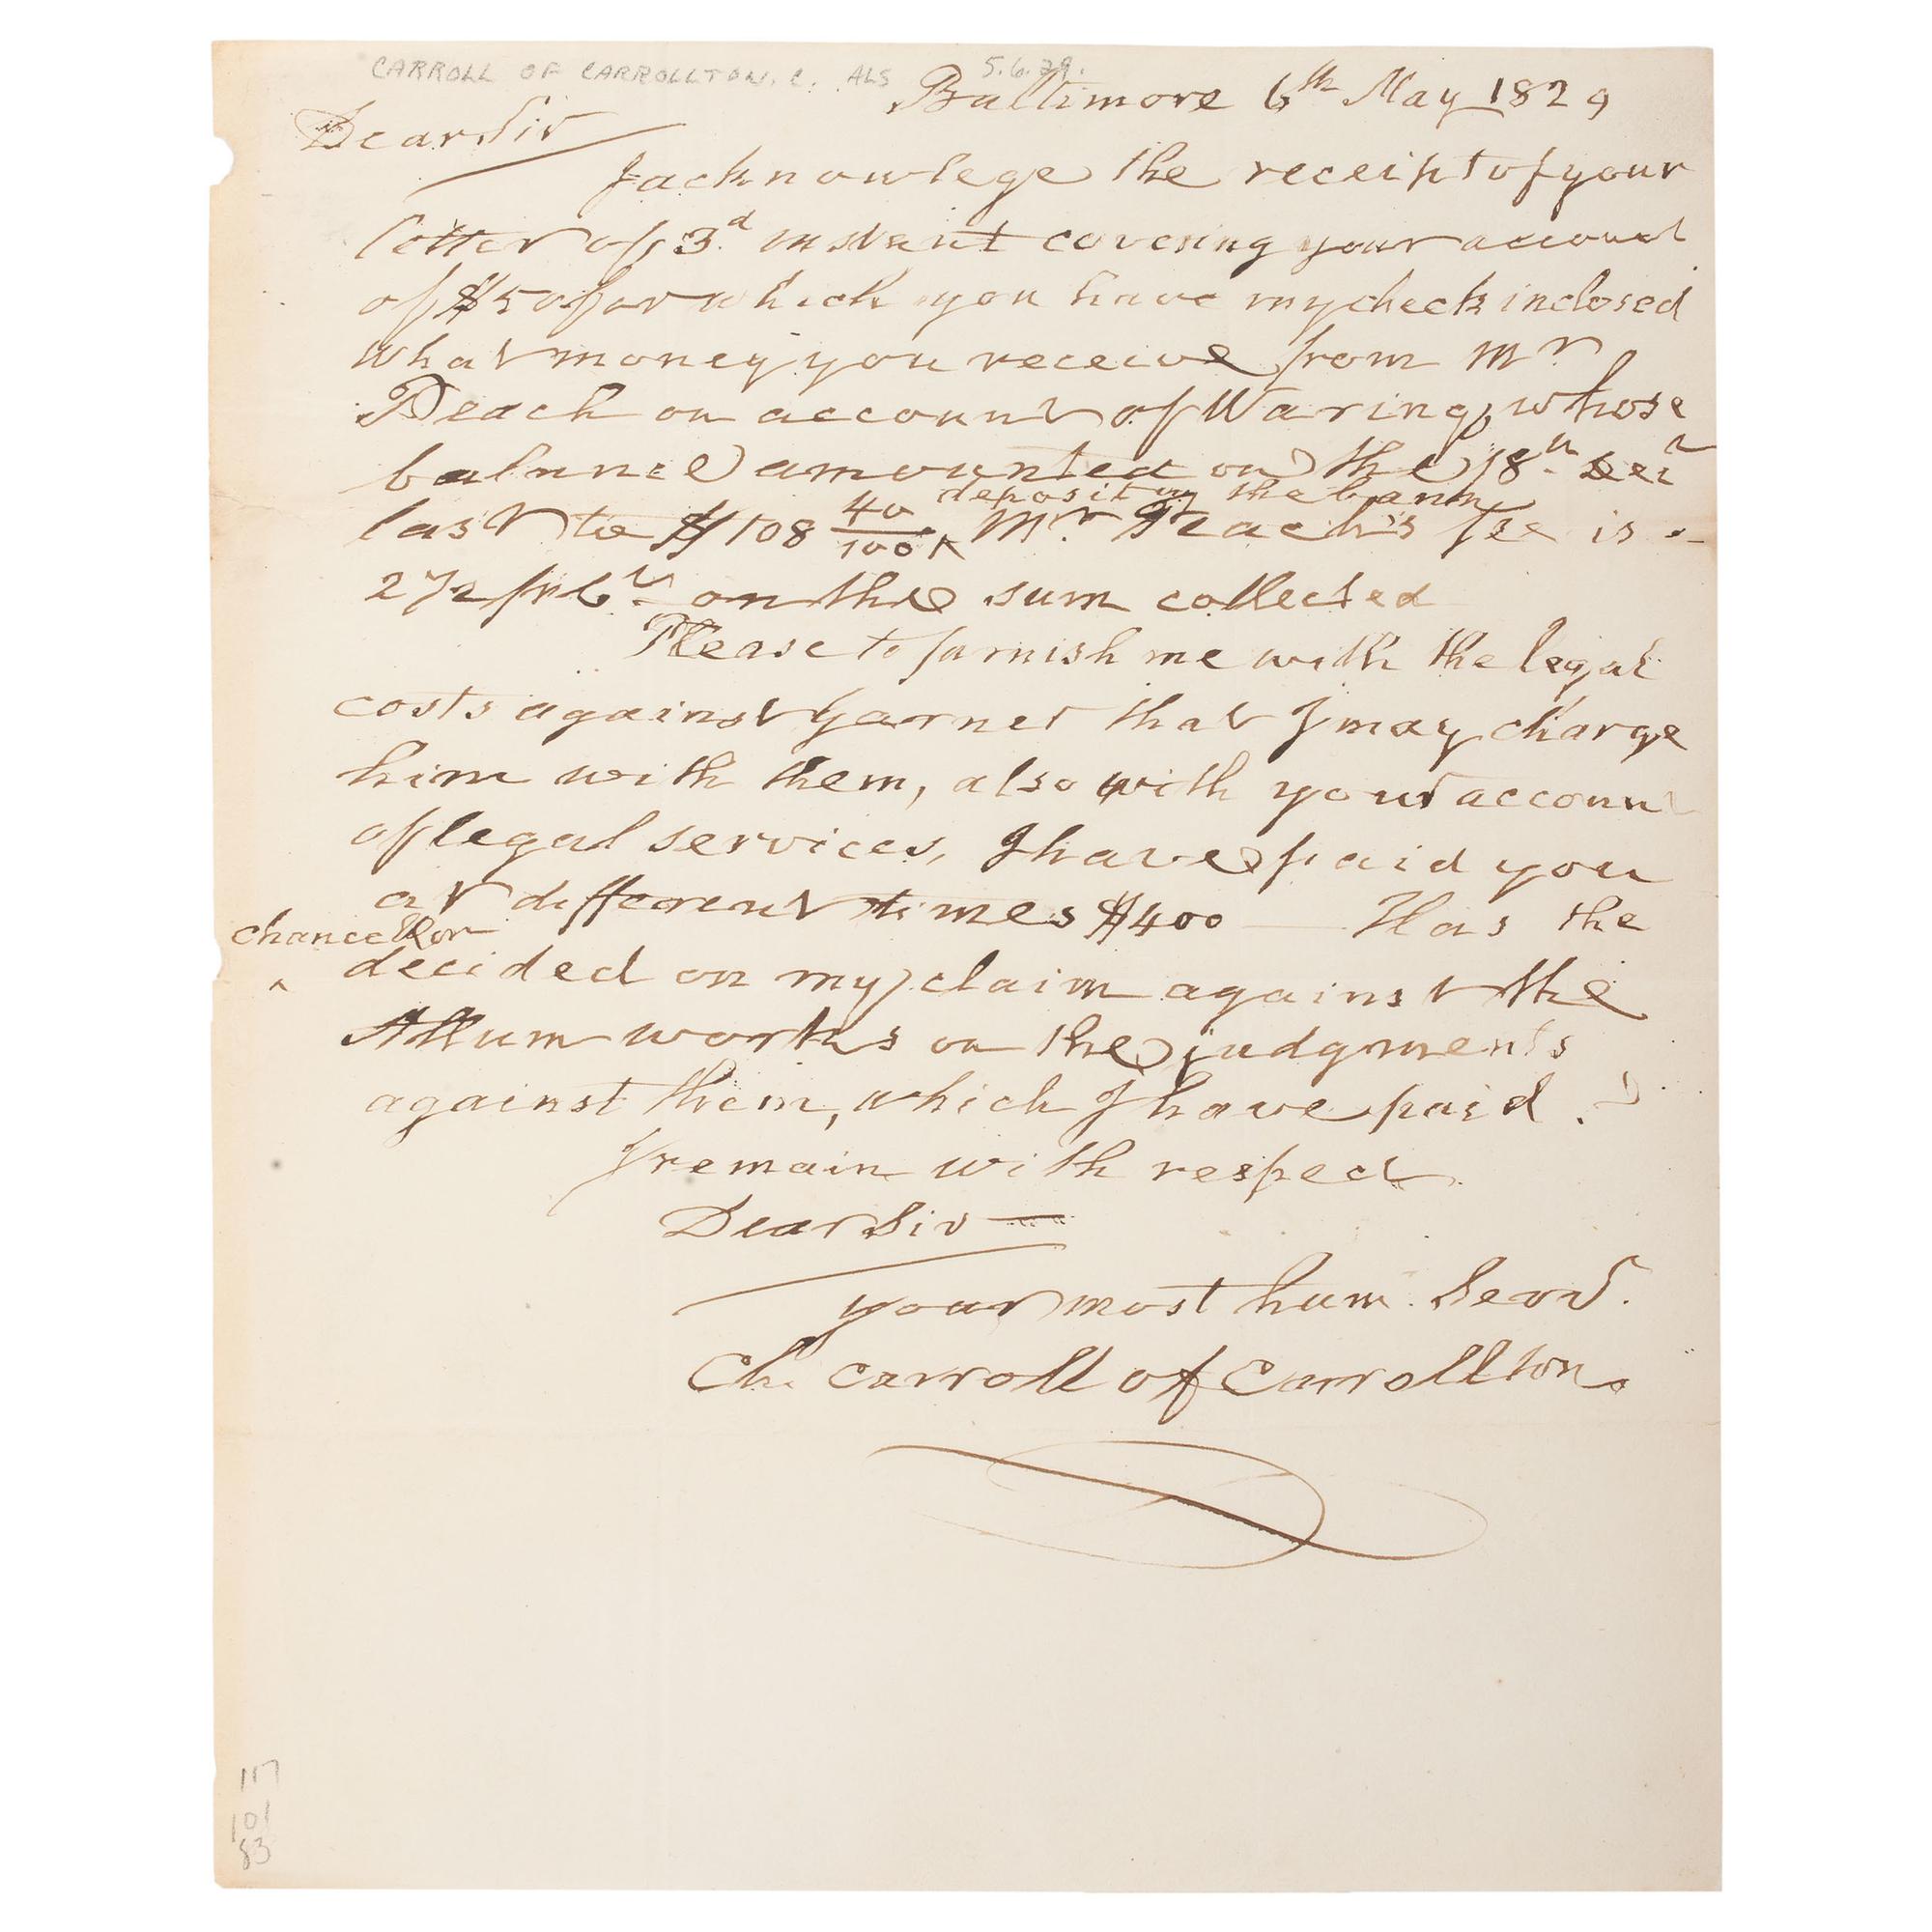 CARROLL OF CARROLLTON, C. ALS 5.6.29.
Baltimore 6th May 1829
Dear Sir
I acknowlege the receipt of your
letter of 3d instant covering your account
of $50 for which you have my check inclosed
What money you receive from Mr
Peach on account of Waring, whose
balance amounted on the 18th Decr
deposit in the bank
last to $108 40/100 ^ Mr Peach's fee is
2 1/2 pr Ct on the sum collected
Please to furnish me with the legal
costs against Garner that I may charge
him with them, also with your account
of legal services, I have paid you
at different times $400 — Has the
chancellor
^ decided on my claim against the
Allum works on the judgments
against them, which I have paid. ?
I remain with respect
Dear Sir —
your most hum. Servt.
Ch. Carroll of Carrollton.
117
101
83